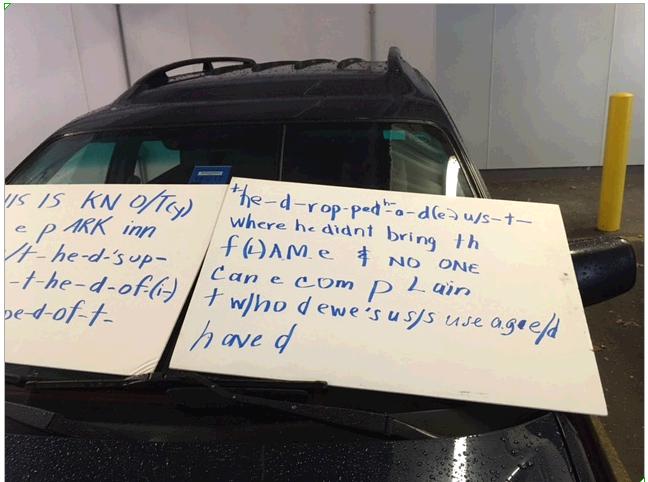 IS IS KNO/T(y)
e pARK inn
/t-he-d-'s up-
-t-he-d-of-(i-)
pe-d-of-t-
the-d-rop-ped-h-a-d(e-) u/s-t-
where he didnt bring th
f(L)AMe & NO ONE
can e com p Lain
t w/ho d ewe's us/s use agree/d
have d